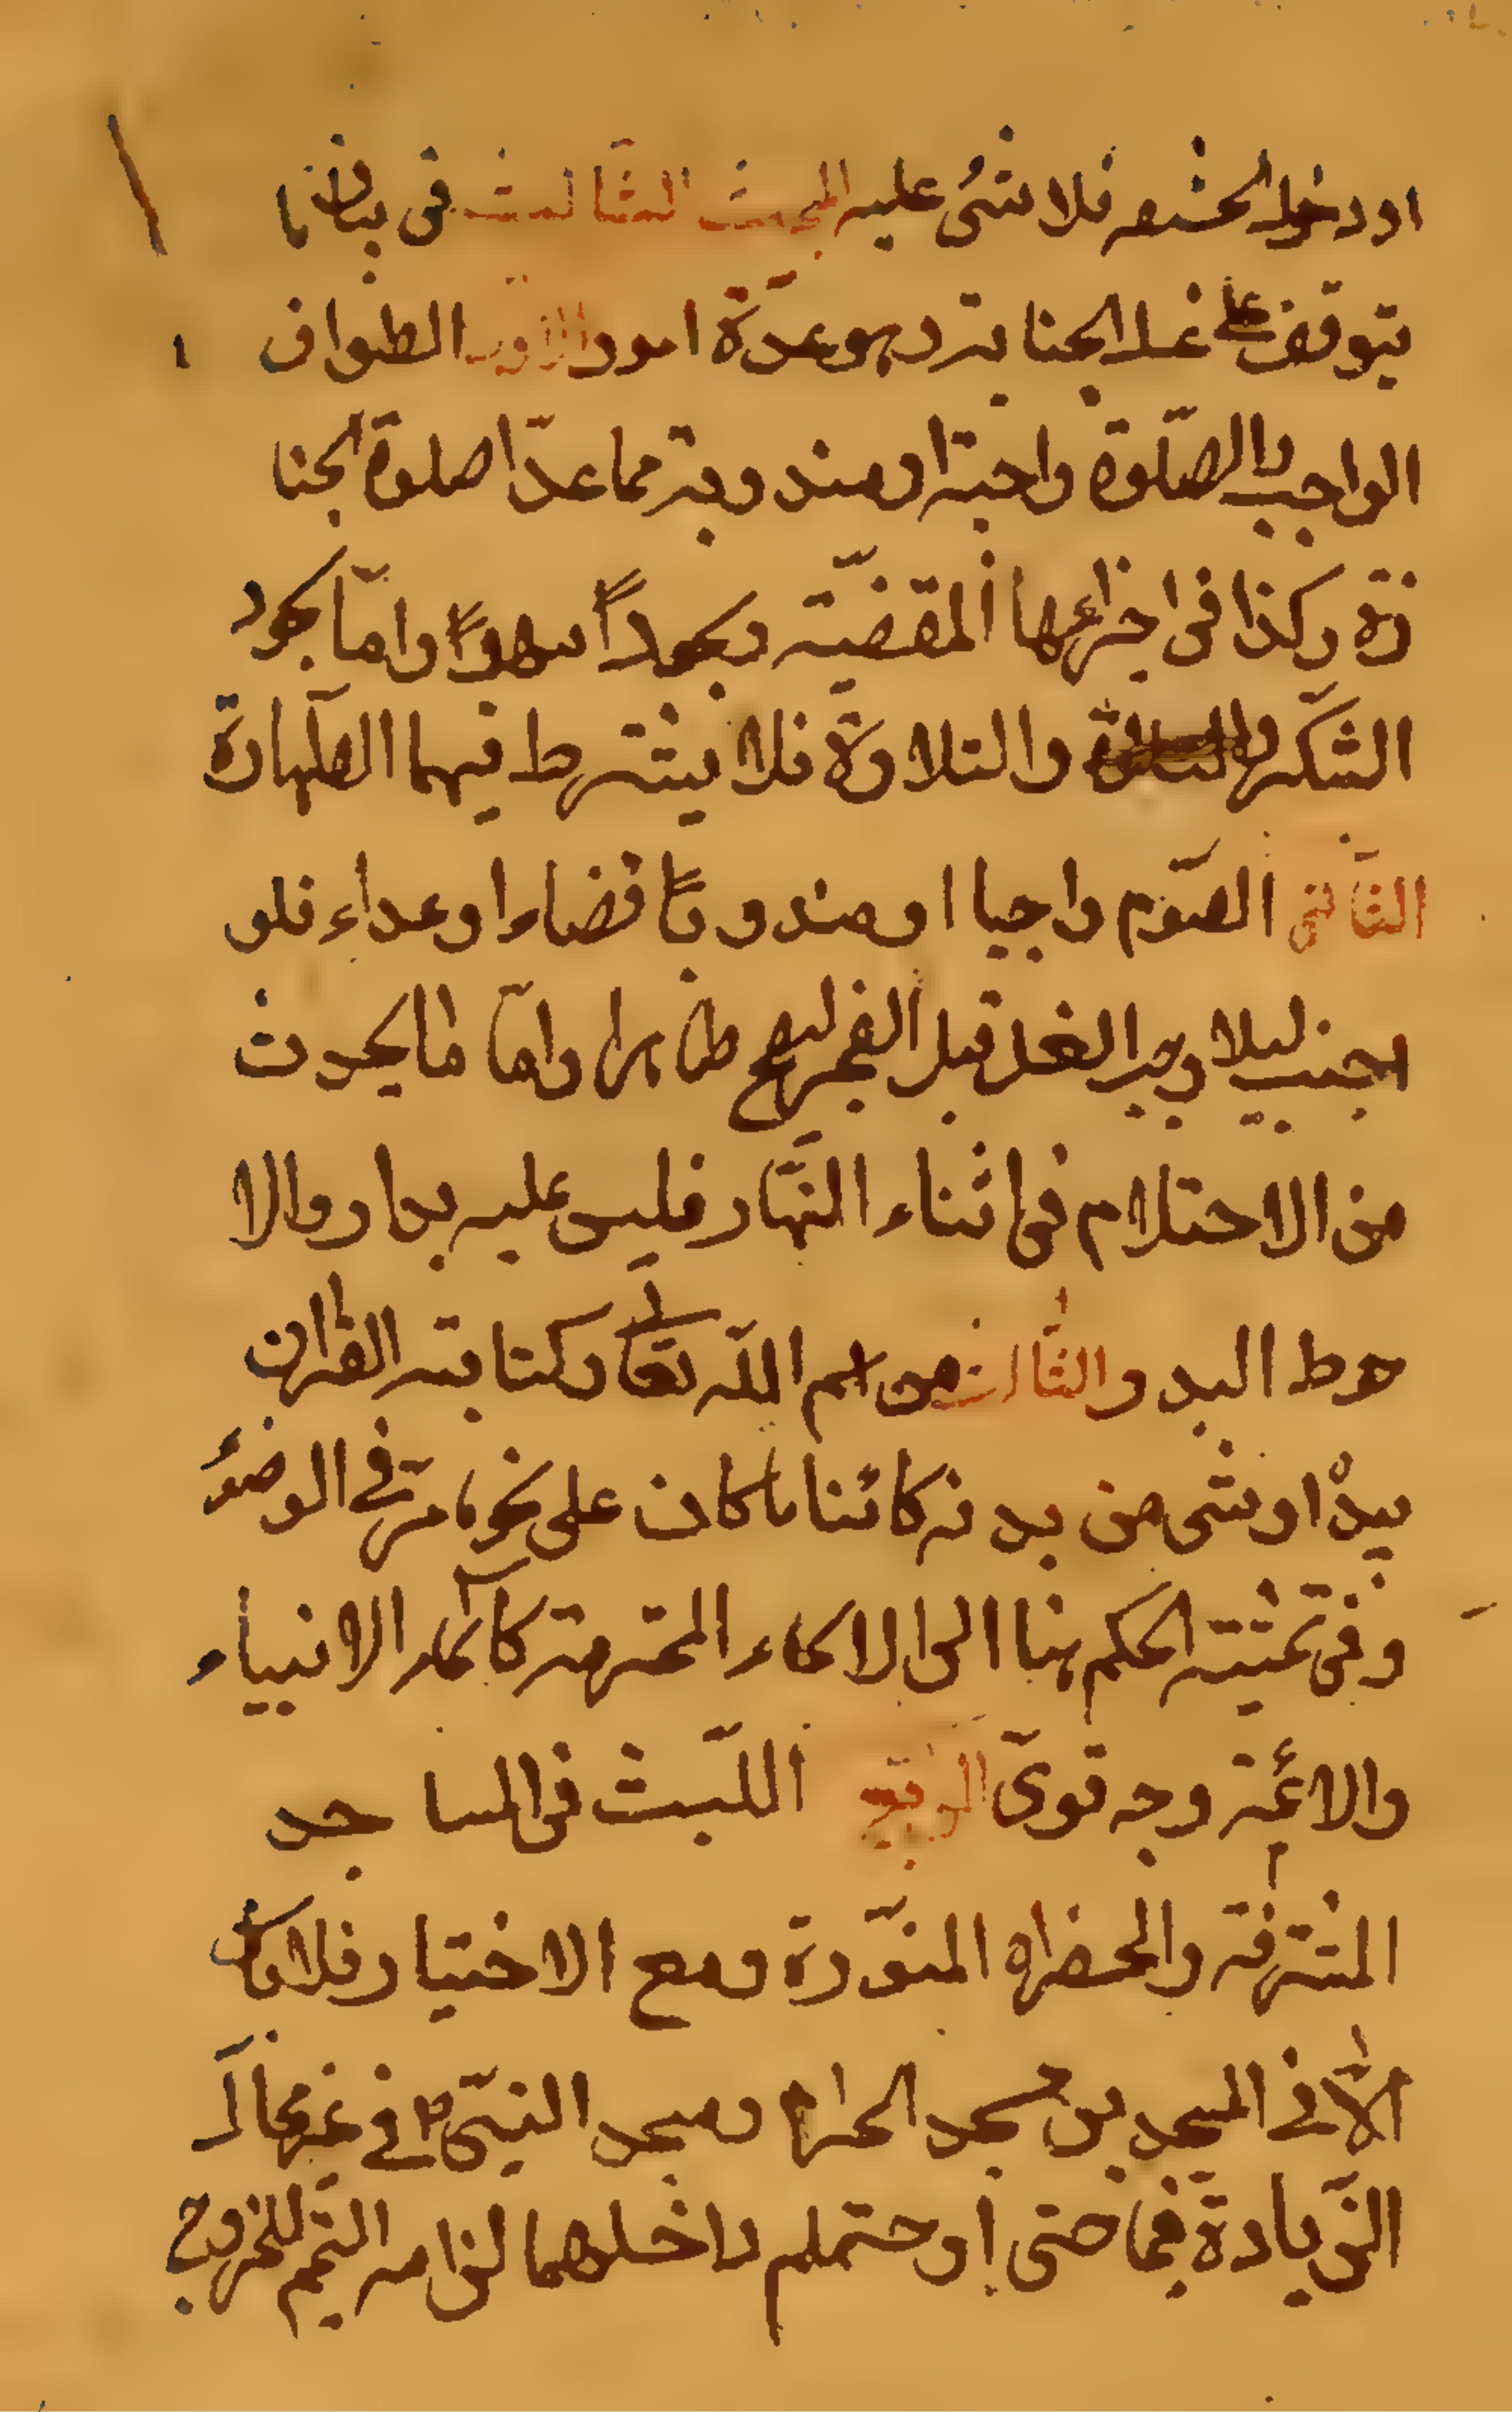 او دخول الحشفه فلا شئ عليه المبحث الثالث فى بيان ما
يتوقف على غسل الجنابة وهو عدة امور الاول الطواف
الواجب والصلوة واجبة او مندوبة مما عدا صلوة الجنا
زة وكذا فى اجزائها المقضية وسجود السهو واما سجود
الشكر والتلاوة فلا يشترط فيهما الطهارة
الثانى الصوم واجبا او مندوبا قضاء او عداء فلو
اجنب ليلا وجب الغسل قبل الفجر ليصبح طاهرا واما ما يحدث
من الاحتلام فى اثناء النهار فليس عليه بدار والا
حوط البدو الثالث مس اسم الله تعالى وكتابة القران
بيده او شئ من بدنه كائنا ما كان على نحو ما مر فى الوضوء
وفى تمشية الحكم هنا الى الاسماء المحترمة كاسماء الانبياء
والائمة وجه قوى الرابع اللبث فى المساجد
المشرفة والحضراه المنورة ومع الاختيار فلا باس
الا فى المسجدين مسجد الحرام ومسجد النبى ص فى غيرهما
الزيادة فيما حتى او احتلم داخلهما لزامه التيمم للخروج